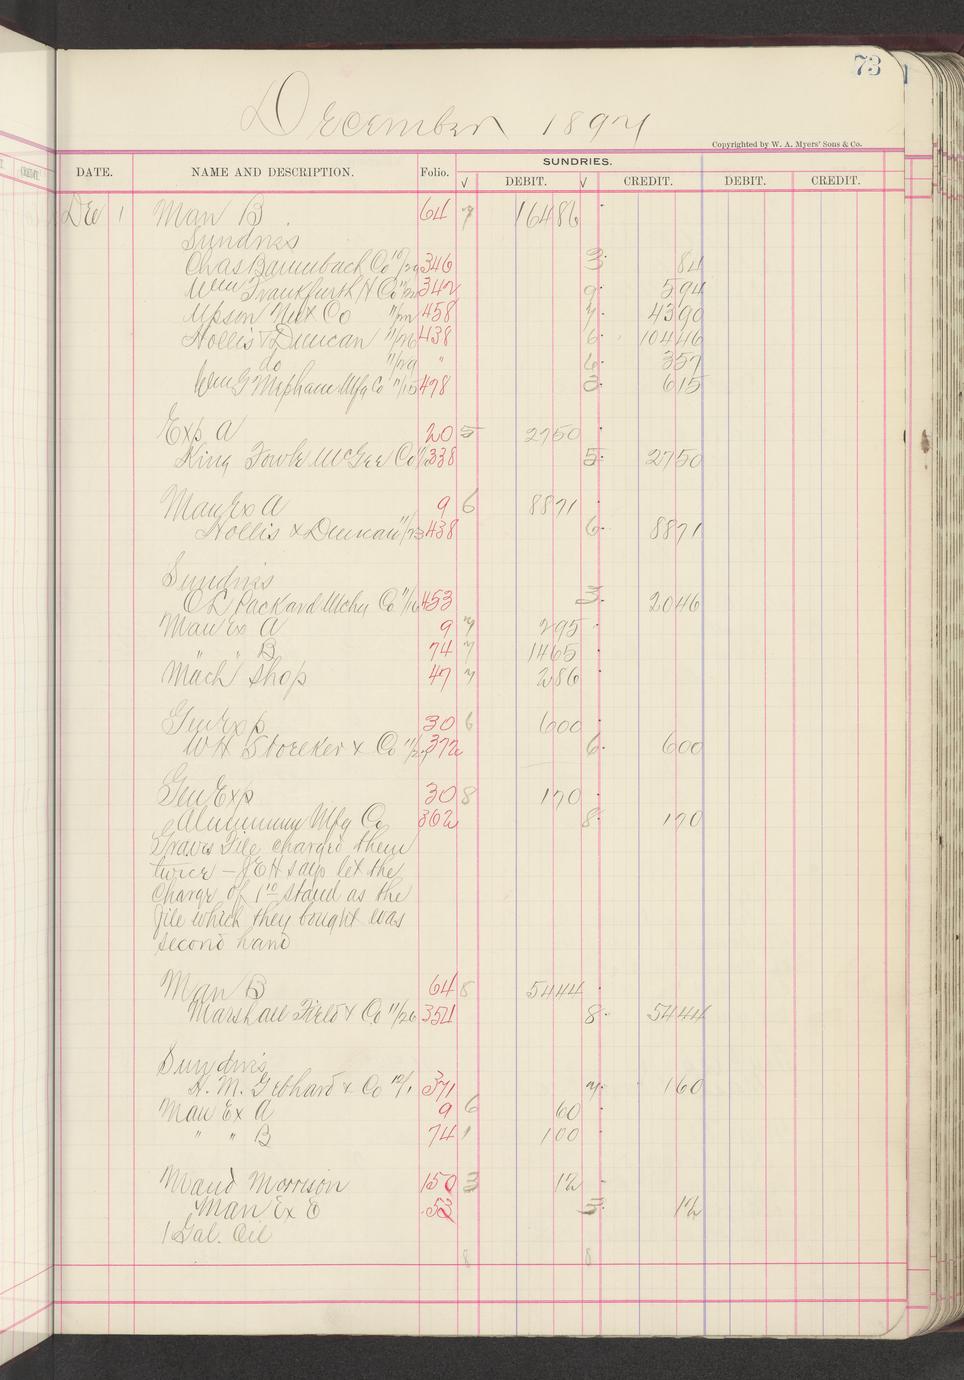 73
December 1897
Copyrighted by W. A. Myers' Sons & Co.
SUNDRIES.
DATE. NAME AND DESCRIPTION. Folio. √ DEBIT. √ CREDIT. DEBIT. CREDIT.
Dec 1 Man B 64 7 16486
Sundries
Chas Baumbach Co 10/29 346 3 84
Wm Frankfurth H Co 342 9 594
Upson Nut Co 458 7 4390
Hollis & Duncan 11/26 438 6 10446
do 11/29 " 6 357
Wm G Mepham Mfg Co 11/15 478 3 615
Exp A 20 5 2750
King Fowle McGee Co 338 5 2750
Man Ex A 9 6 8871
Hollis & Duncan 11/23 438 6 8871
Sundries
OL Packard Mchy Co 11/16 453 3 2046
Man Ex A 9 7 295
" " B 74 7 1465
Mach Shop 47 7 286
Gen Exp 30 6 600
WH Stoecker & Co 11/27 372 6 600
Gen Exp 30 8 170
Aluminum Mfg Co 362 8 170
Graves File charged them
twice - JEH says let the
Charge of 1 10 stand as the
file which they bought was
second hand
Man B 64 8 5444
Marshall Field & Co 11/26 354 8 5444
Sundries
A. M. Gebhard & Co 12/1 371 7 160
Man Ex A 9 6 60
" " B 74 1 100
Maud Morrison 150 3 12
Man Ex B 53 3 12
1 Gal. Oil
8 8